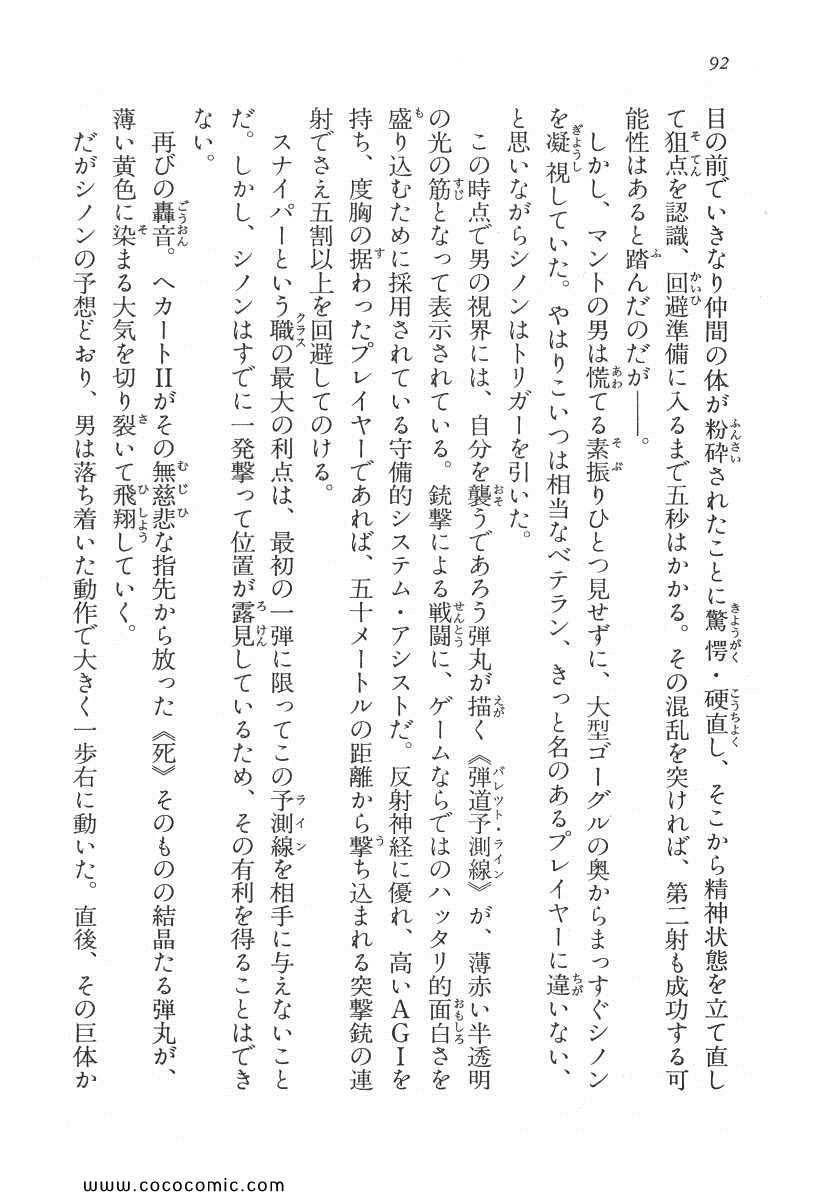 92
目の前でいきなり仲間の体が粉砕されたことに驚愕・硬直し、そこから精神状態を立て直し
て狙点を認識、回避準備に入るまで五秒はかかる。その混乱を突ければ、第二射も成功する可
能性はあると踏んだのだが――。
しかし、マントの男は慌てる素振りひとつ見せずに、大型ゴーグルの奥からまっすぐシノン
を凝視していた。やはりこいつは相当なベテラン、きっと名のあるプレイヤーに違いない、
と思いながらシノンはトリガーを引いた。
この時点で男の視界には、自分を襲うであろう弾丸が描く《弾道予測線》が、薄赤い半透明
の光の筋となって表示されている。銃撃による戦闘に、ゲームならではのハッタリ的面白さを
盛り込むために採用されている守備的システム・アシストだ。反射神経に優れ、高いAGIを
持ち、度胸の据わったプレイヤーであれば、五十メートルの距離から撃ち込まれる突撃銃の連
射でさえ五割以上を回避してのける。
スナイパーという職の最大の利点は、最初の一弾に限ってこの予測線を相手に与えないこと
だ。しかし、シノンはすでに一発撃って位置が露見しているため、その有利を得ることはでき
ない。
再びの轟音。ヘカートIIがその無慈悲な指先から放った《死》そのものの結晶たる弾丸が、
薄い黄色に染まる大気を切り裂いて飛翔していく。
だがシノンの予想どおり、男は落ち着いた動作で大きく一歩右に動いた。直後、その巨体か
www.cococomic.com